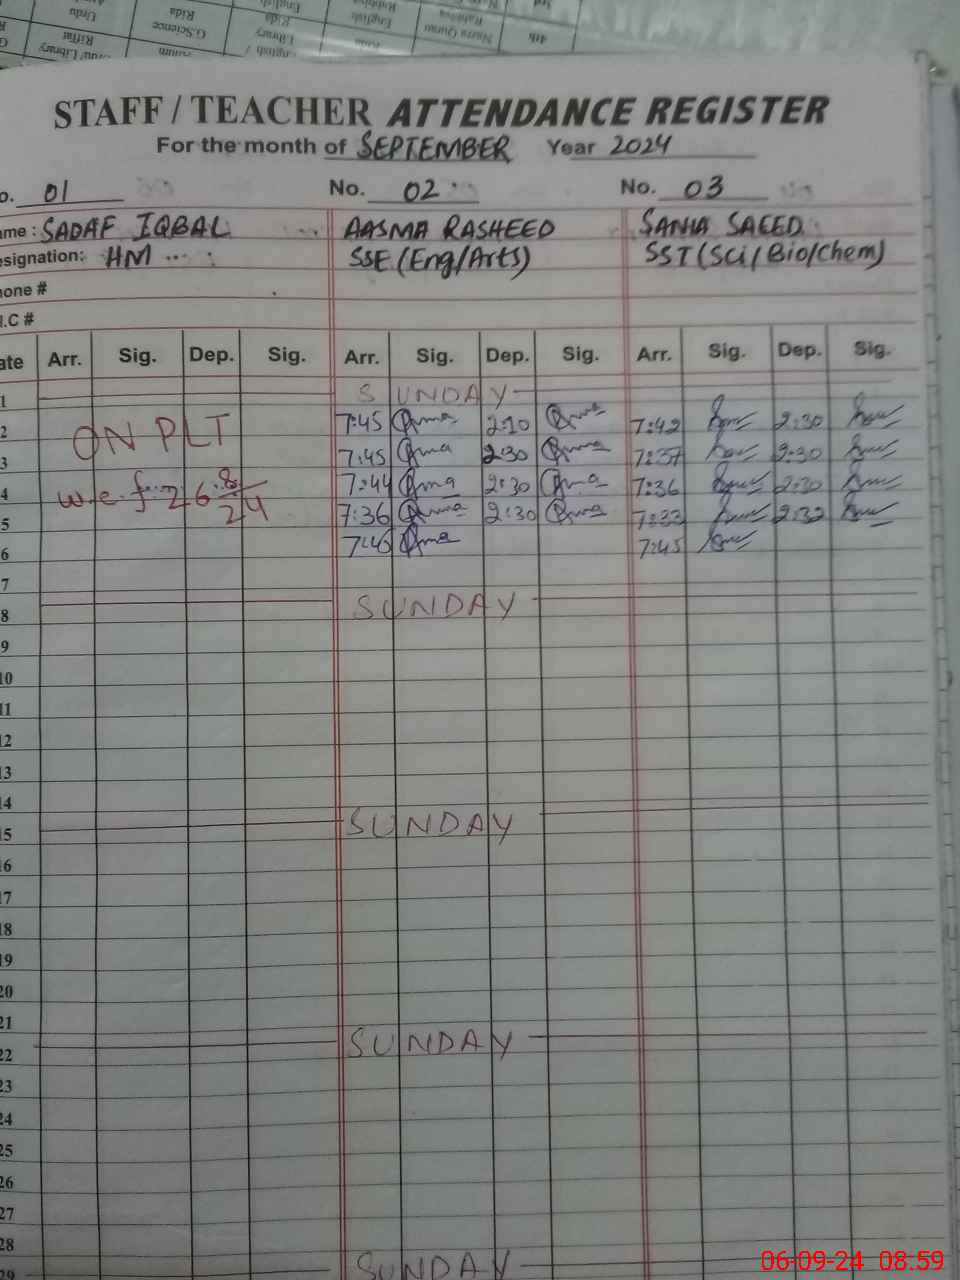 4th
Nazra Quran
English
Library
Rida
G.Science
Rida
Urdu
Riffat
STAFF / TEACHER ATTENDANCE REGISTER
For the month of SEPTEMBER Year 2024
o. 01 No. 02 No. 03
me : SADAF IQBAL AASMA RASHEED SANIA SAEED
esignation: HM SSE (Eng/Arts) SST (Sci/Bio/Chem)
hone #
.I.C #
ate Arr. Sig. Dep. Sig. Arr. Sig. Dep. Sig. Arr. Sig. Dep. Sig.
1 SUNDAY
2 ON PLT 7:45 2:10 7:42 2:30
3 7:45 2:30 7:37 2:30
4 w.e.f. 26 8/24 7:44 2:30 7:36 2:30
5 7:36 2:30 7:33 2:32
6 7:46 7:45
7
8 SUNDAY
9
10
11
12
13
14
15 SUNDAY
16
17
18
19
20
21
22 SUNDAY
23
24
25
26
27
28
29 SUNDAY
06-09-24 08.59